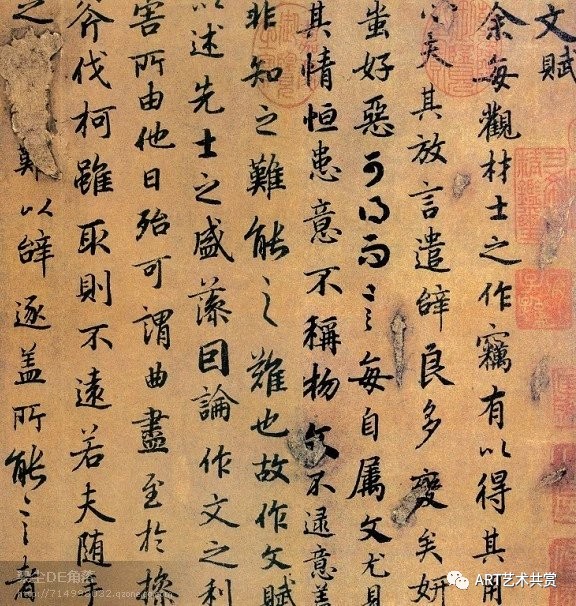 文賦
余每觀材士之作竊有以得其用
心矣其放言遣辭良多變矣妍
蚩好惡可得而言每自属文尤見
其情恒患意不稱物文不逮意盖
非知之難能之難也故作文賦
以述先士之盛藻因論作文之利
害所由他日殆可謂曲盡至於操
斧伐柯雖取則不遠若夫随手
之難以辭逐盖所能言者
ART艺术共赏